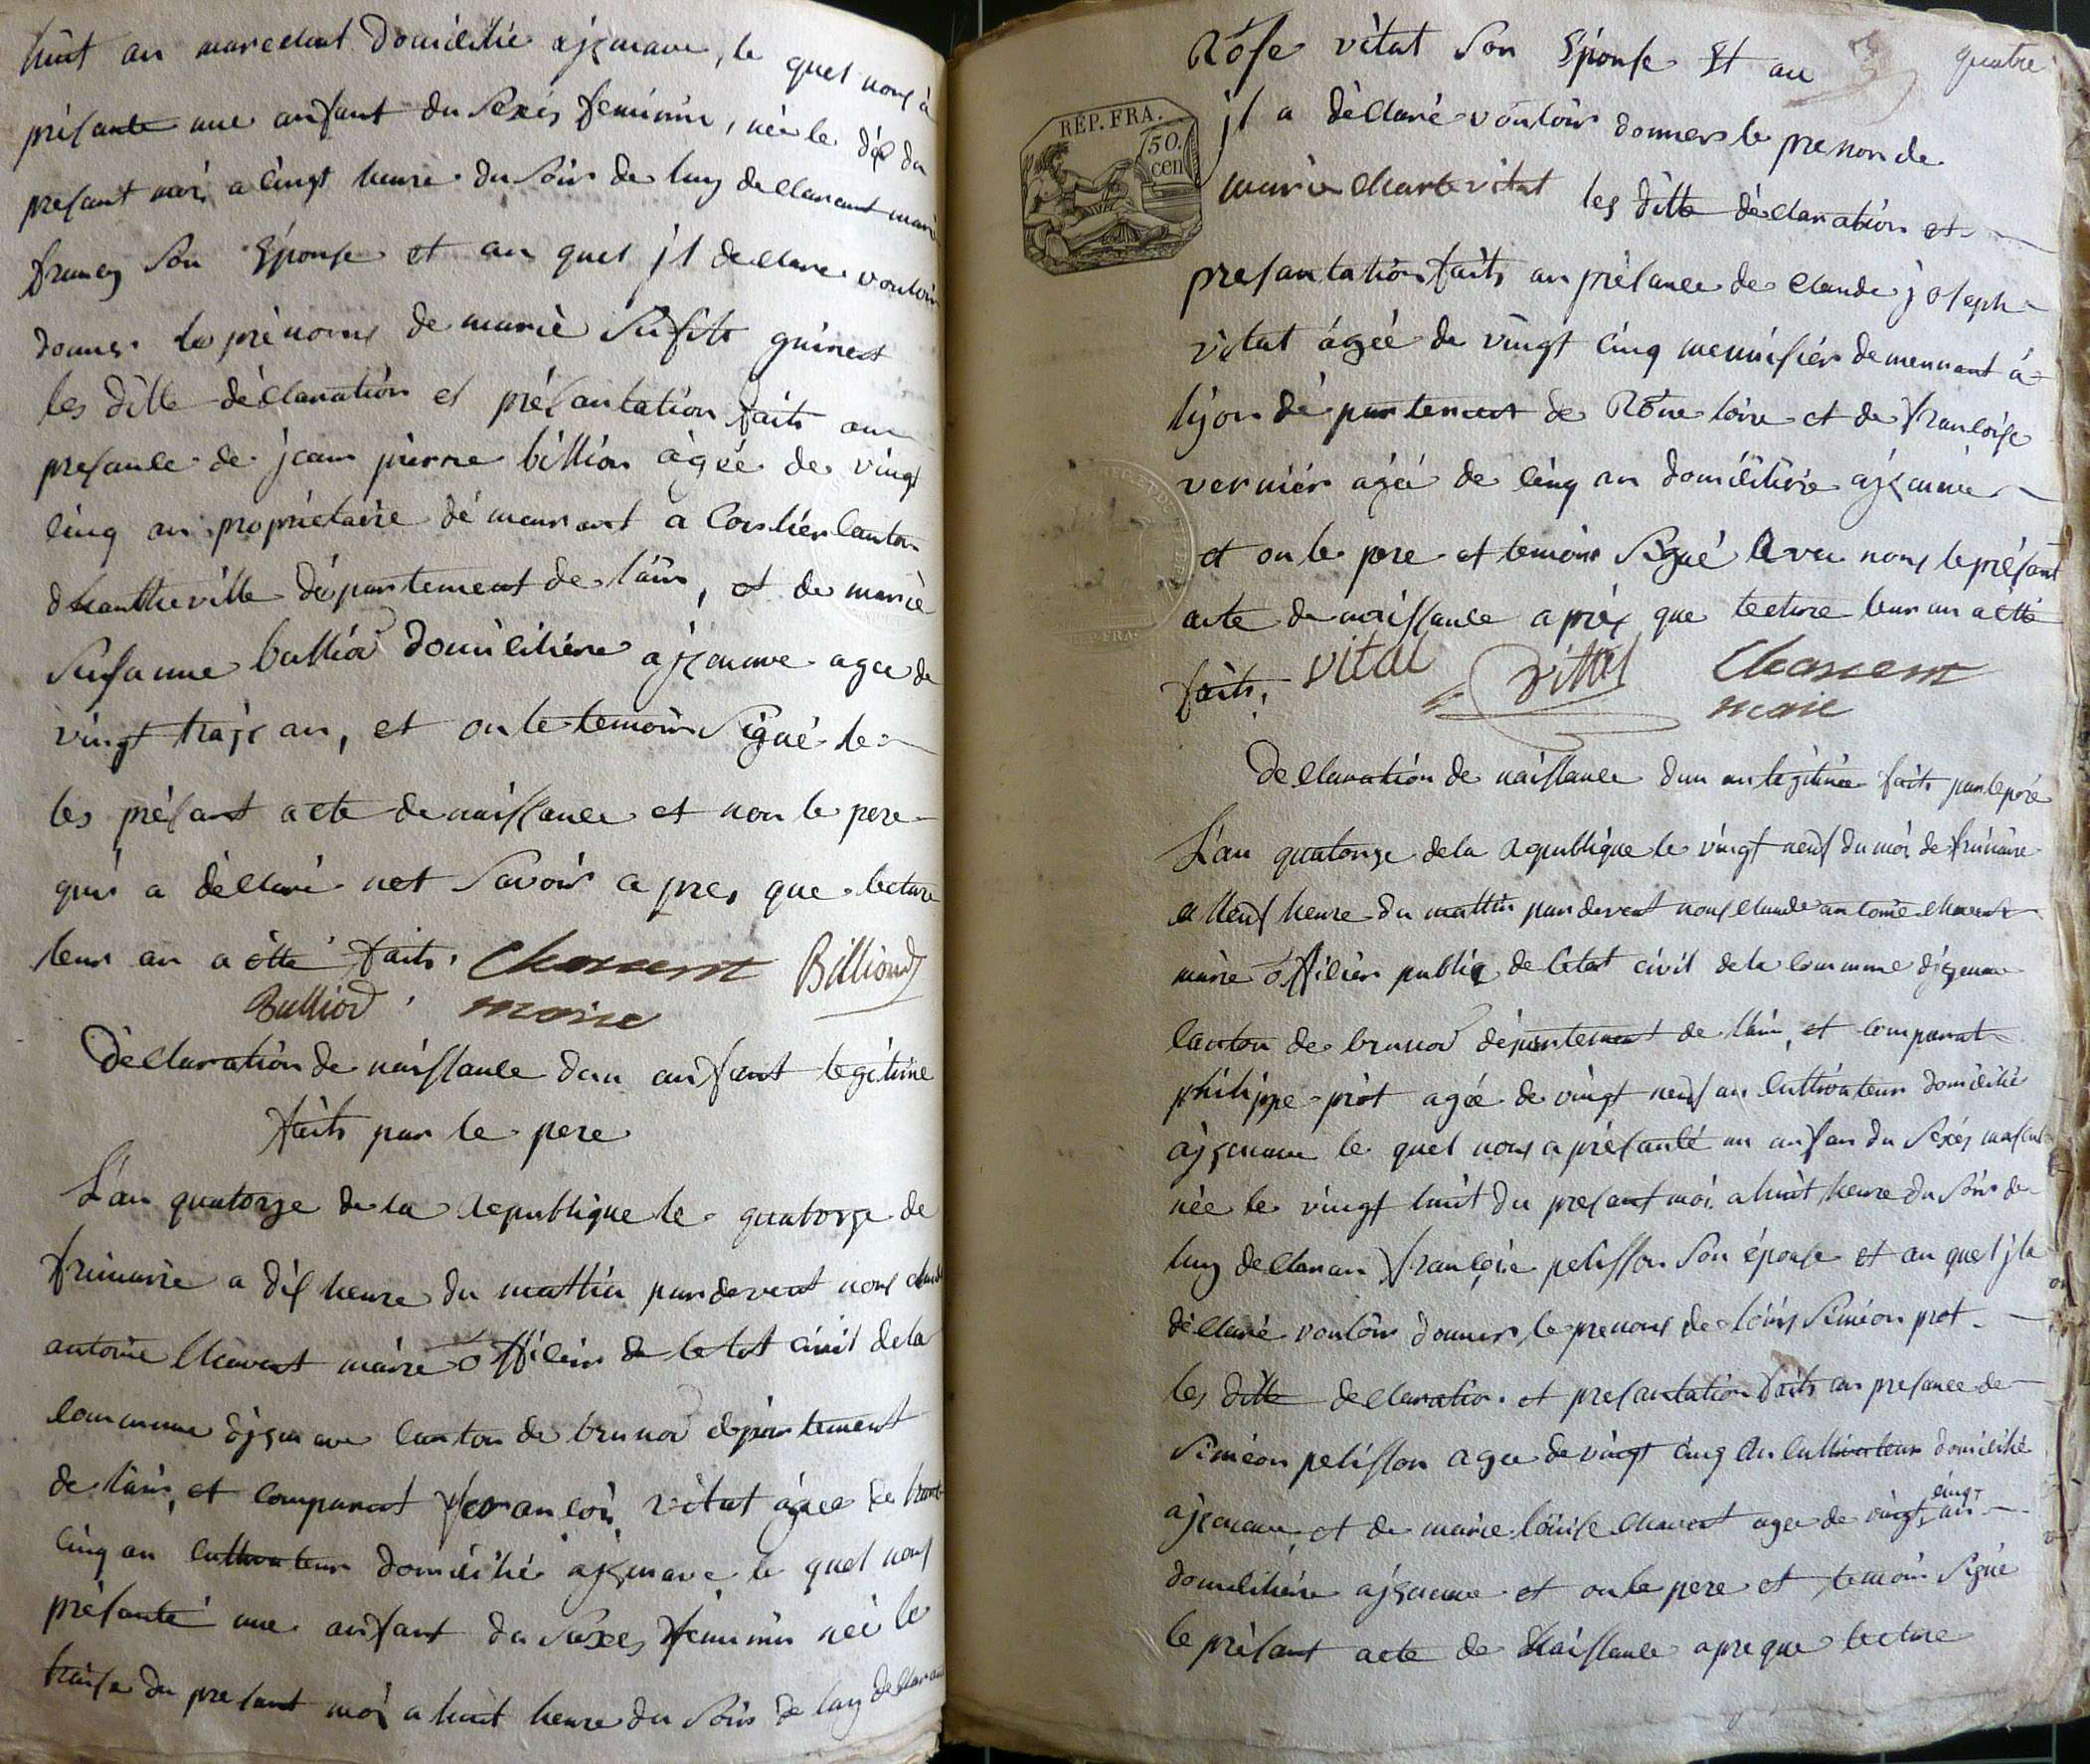 huit an marchant domicilié ajzenave, le quel nous à
présante une anfant du Sexes feminin, née le dis du
presant moi a cinqt heure du Soir de luy declarant marie
francoy Son Epouse et au quel jl declare vouloir
donner le prénoms de marie Susete guinet
les ditte déclaration et présantation faits an
presance de jean pierre billion agée de vingt
cinq an propriétaire démeurant a Corlier Canton
dhautheville département de lain, et de marie
Susanne bulliod domicilière ajzenave agee de
vingt traize an, et on le temoin Signé le
les présant acte de naissance et non le pere
qui a déclaré net Savoir apres que lecture
leur an a étté faits. Chavent Billiond
Bulliod. maire
Déclaration de naissance dun anfant legitime
faits par le pere
L'an quatorze de la republique le quatorze de
frimaire a dix heure du mattin pardevent nous claude
antoine Chavent maire officier de letat civil de la
commune dizenave canton de brenod département
de lain, et comparant francois vitat agée de trante
cinq an cultivateur domicilié ajzenave le quel nous
présanté une anfant du Sexes feminin née le
traise du presant moi a huit heure du Soir de luy declarant
quatre
Rose vitat Son Epouse Et au
jl a déclaré vouloir donner le prenon de
marie Charte vitat les ditte déclaration et
RÉP. FRA.
50.
cen
presantation faits an présance de claude joseph
vitat ágée de vingt cinq menuisier demeurant à
lyon département de Rône loire et de françoise
vernier agée de cinq an domicilière ajzenave
et on le pere et temoins Signé Avec nous le présant
acte de naissance apréx que lecture leur an a étté
faits. vital Vittet Chavent
maire
Declaration de naissance dun an legitime faits par le pére
L'an quatorze de la republique le vingt neuf du moi de frimaire
a Neuf heure du mattin par devent nous claude antoine chavent
maire officier publiq de letat civil de la commune dizenave
Canton de brenod département de lain, et comparant
philippe prot agée de vingt neuf an cultivateur domicilié
ajzenave le quel nous a présanté un anfan du Sexes masculin
née le vingt huit du presant moi a huit heure du Soir de
luy declaran françoise pelisson Son épouse et au quel jl a
déclaré vouloir donner le prenons de loüis Siméon prot
les ditte declaration et presantation faits an presance de
Siméon pelisson agee de vingt cinq an cultivateur domicilié
ajzenave et de marie loüise chavent agee de vingt cinqt an
domicilière ajzenave et on le pere et temoin Signé
le présant acte de Naissance apre que lecture